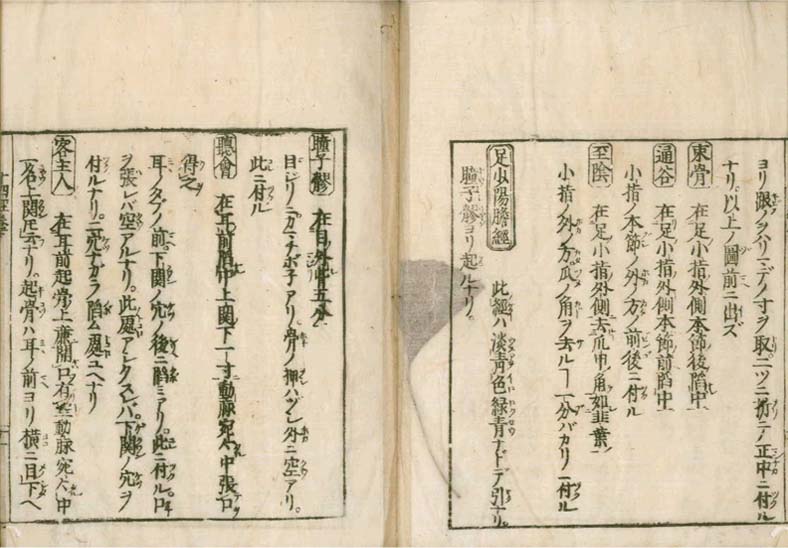 ヨリ限ノヲハリマデノ寸ヲ取二ツニ折テノ正中ニ付ル
ナリ。以上ノ圖前ニ出ズ
束骨 在足小指外側本節後陷中
通谷 在足小指外側本節前陷中
小指ノ本節ノ外ノ方ノ前後ニ付ル
至陰 在足小指外側去爪甲角如韭葉
小指ノ外ノ方爪ノ角ヲ去ルコ一分バカリニ付ル
足少陽膽經 此經ハ淡青色緑青ナドデ引ナリ。
瞳子髎ヨリ起ルナリ。
瞳子髎 在目外眥五分
目ジリノ骨ノ押ハヅレ外ニ空アリ。
此ニ付ル
聽會 在耳前陷中上關下一寸動脉宛宛中張口
得之
耳ノタブノ前。下關ノ穴ノ後ニ陷ミアリ。此ニ付ル。口
ヲ張レバ空アルナリ。此處アシクスレバ下關ノ穴ヲ
付ルナリ。二穴ナガラ陷ム處ユヘナリ
客主人 在耳前起骨上廉開口有空動脉宛宛中
一名上關ト云ナリ。起骨ハ耳ノ前ヨリ横ニ目ノ下ヘ